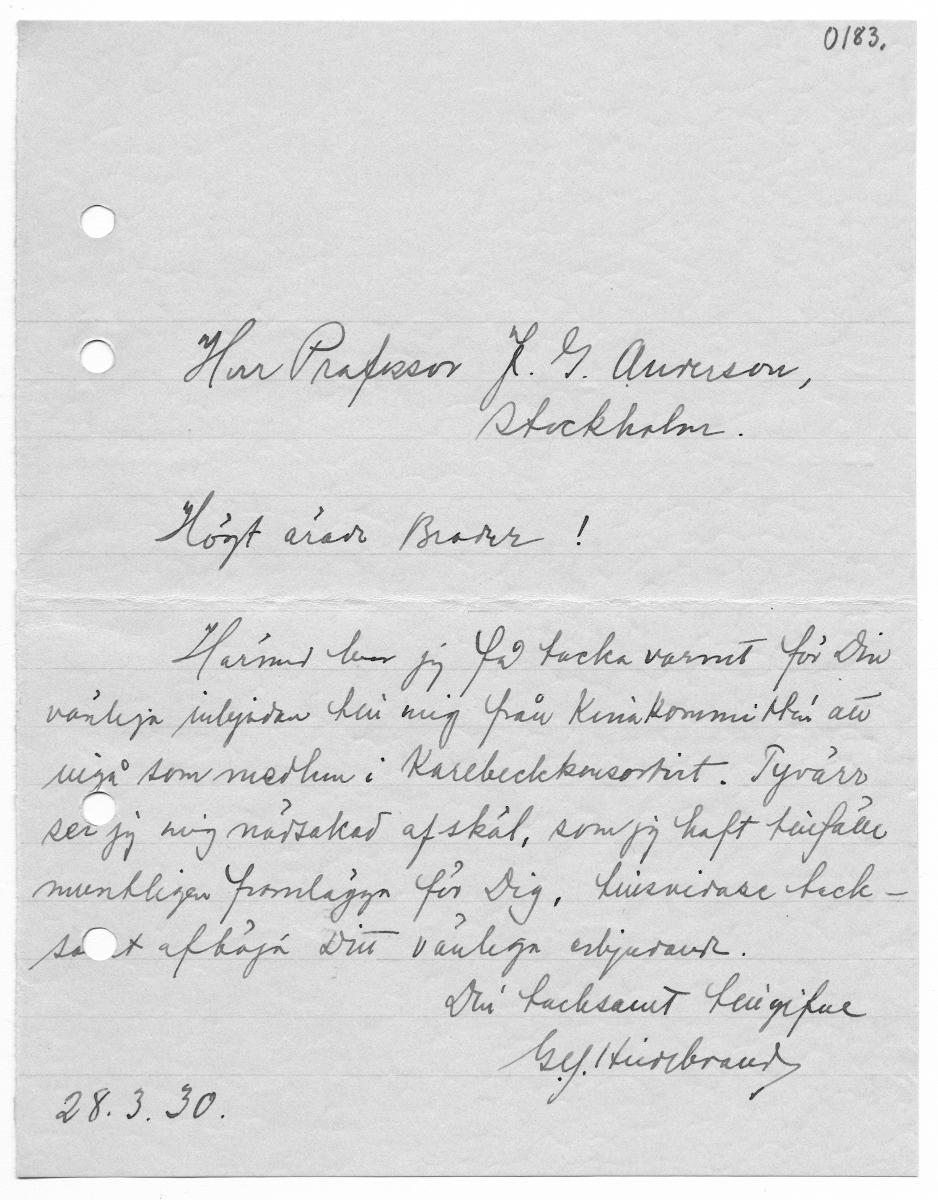 0183.
Herr Professor J. G. Anderson,
Stockholm.
Högt ärade Broder !
Härmed ber jag få tacka varmt för Din
vänliga inbjudan till mig från Kinakommittén att
ingå som medlem i Karlbeckkonsortiet. Tyvärr
ser jag mig nödsakad af skäl, som jag haft tillfälle
muntligen framlägga för Dig, tillsvidare tack-
samt afböja Ditt vänliga erbjudande.
Din tacksamt tillgifne
Hildebrand
28.3.30.